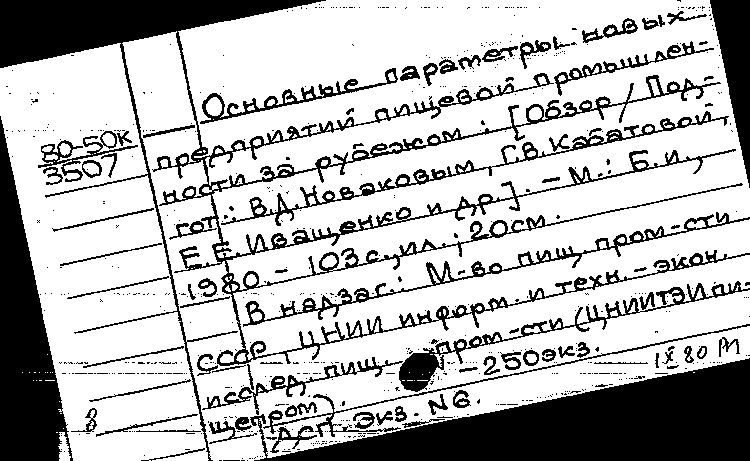 Основные параметры новых
предприятий пищевой промышлен-
ности за рубежом : [Обзор / Под-
гот.: В.Д.Новаковым, Г.В.Кабатовой,
Е.Е.Иващенко и др.]. - М.: Б.и.,
1980. - 103 с., ил.; 20см.
В надзаг.: М-во пищ. пром-сти
СССР, ЦНИИ информ. и техн.-экон.
исслед. пищ. пром-сти (ЦНИИТЭИпи-
щепром). - 250экз.
ДСП. Экз. N6.
80-50к
3507